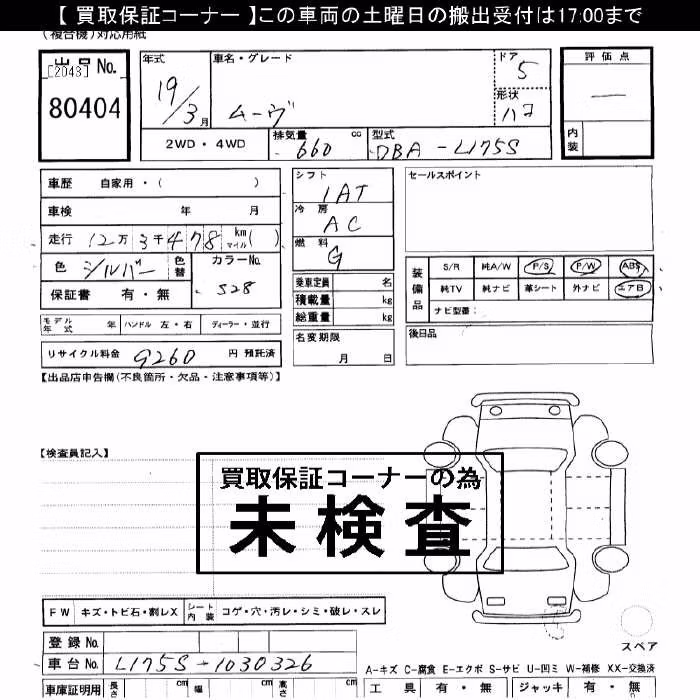 【 買取保証コーナー 】この車両の土曜日の搬出受付は17:00まで
(複合機)対応用紙
出品 No.
[2043]
80404
年式
19/3月
車名・グレード
ムーヴ
ドア
5
形状
ハコ
評価点
—
内装
2WD ・ 4WD
排気量 cc
660
型式
DBA - L175S
車歴 自家用・( )
車検 年 月
走行 12万 3千 4 7 8 km マイル ( )
色 シルバー 色替
カラーNo.
S28
保証書 有・無
シフト
IAT
冷房
AC
燃料
G
乗車定員 名
積載量 kg
総重量 kg
セールスポイント
装備品
S/R 純A/W P/S P/W ABS
純TV 純ナビ 革シート 外ナビ エアB
ナビ型番:
モデル年式 年 ハンドル 左・右 ディーラー・並行
名変期限
月 日
後日品
リサイクル料金 9260 円 預託済
【出品店申告欄(不良箇所・欠品・注意事項等)】
【検査員記入】
買取保証コーナーの為
未検査
FW キズ・トビ石・割レX シート内装 コゲ・穴・汚レ・シミ・破レ・スレ
スペア
登録 No.
車台 No. L175S-1030326
A-キズ C-腐食 E-エクボ S-サビ U-凹ミ W-補修 XX-交換済
車庫証明用 長さ cm 幅 cm 高さ cm
工具 有・無 ジャッキ 有・無